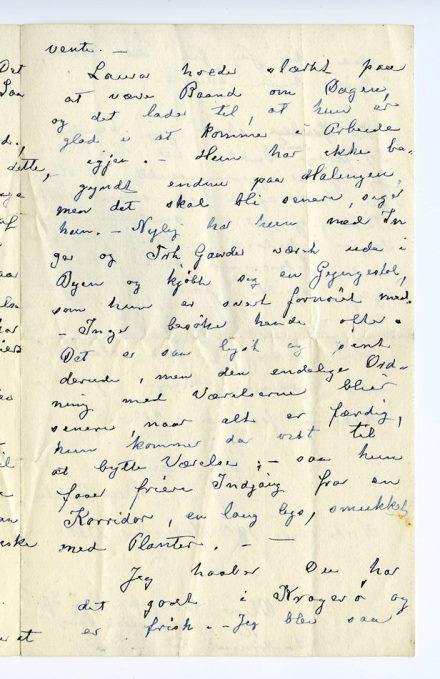 vente. —
Laura holder stærkt paa
at være Baand om Dagen,
og det lader til, at hun er
glad i at komme i Arbeide
igjen. — Hun har ikke be-
gyndt endnu paa Malingen,
men det skal bli senere, siger
hun. — Nylig har hun med In-
ga og Frk Gander været ude i
Byen og kjøbt sig en Gyngestol,
som hun er svært fornøiet med.
— Inga besøker hende ofte.
Det er saa lyst og pent
derude, men den endelige Ord-
ning med Værelserne blir
senere, naar alt er færdig,
hun kommer da vist til
at bytte Værelse; — saa hun
faar friere Indgang fra en
Korridor, en lang lys, smukket
med Planter. — —
Jeg haaber Du har
det godt i Kragerø og
er frisk. — Jeg blev saa
Det
dette,
af
aar
har